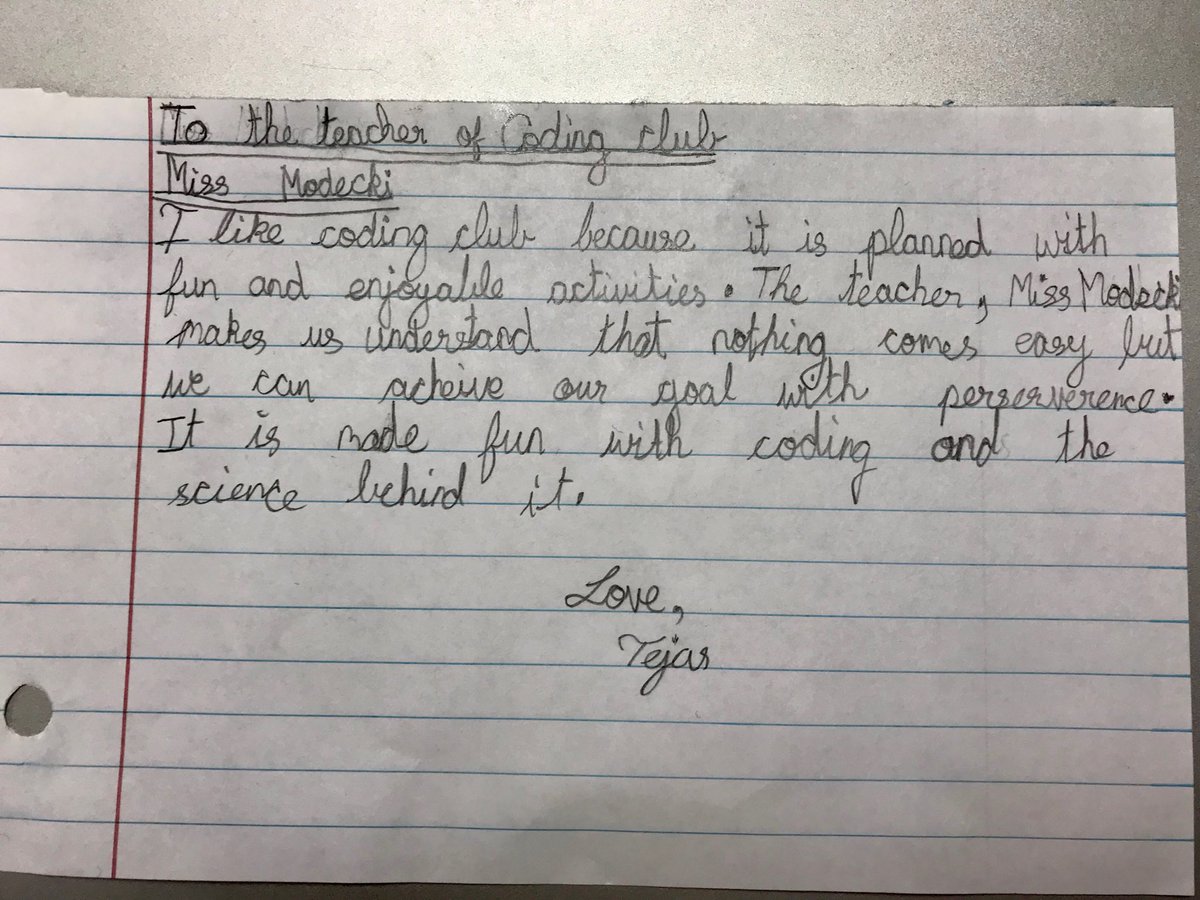 To the teacher of Coding club
Miss Modecki
I like coding club because it is planned with
fun and enjoyable activities. The teacher, Miss Modecki
makes us understand that nothing comes easy but
we can acheive our goal with perserverence.
It is made fun with coding and the
science behind it.
Love,
Tejas